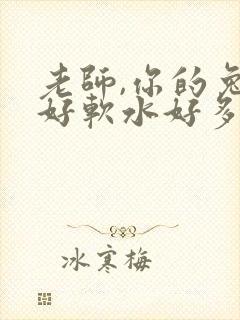 老師,你的兔
好軟水好多
冰寒梅